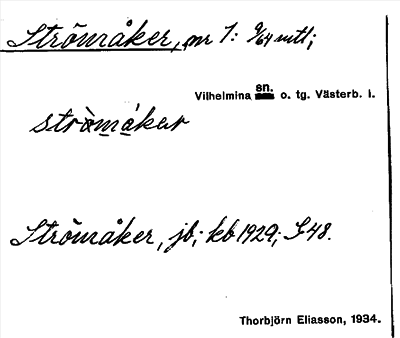 Strömåker, nr 1: 9/64 mtl;
Vilhelmina sn. o. tg. Västerb. l.
strö̀mákar
Strömåker, jb; kb 1929; S48.
Thorbjörn Eliasson, 1934.